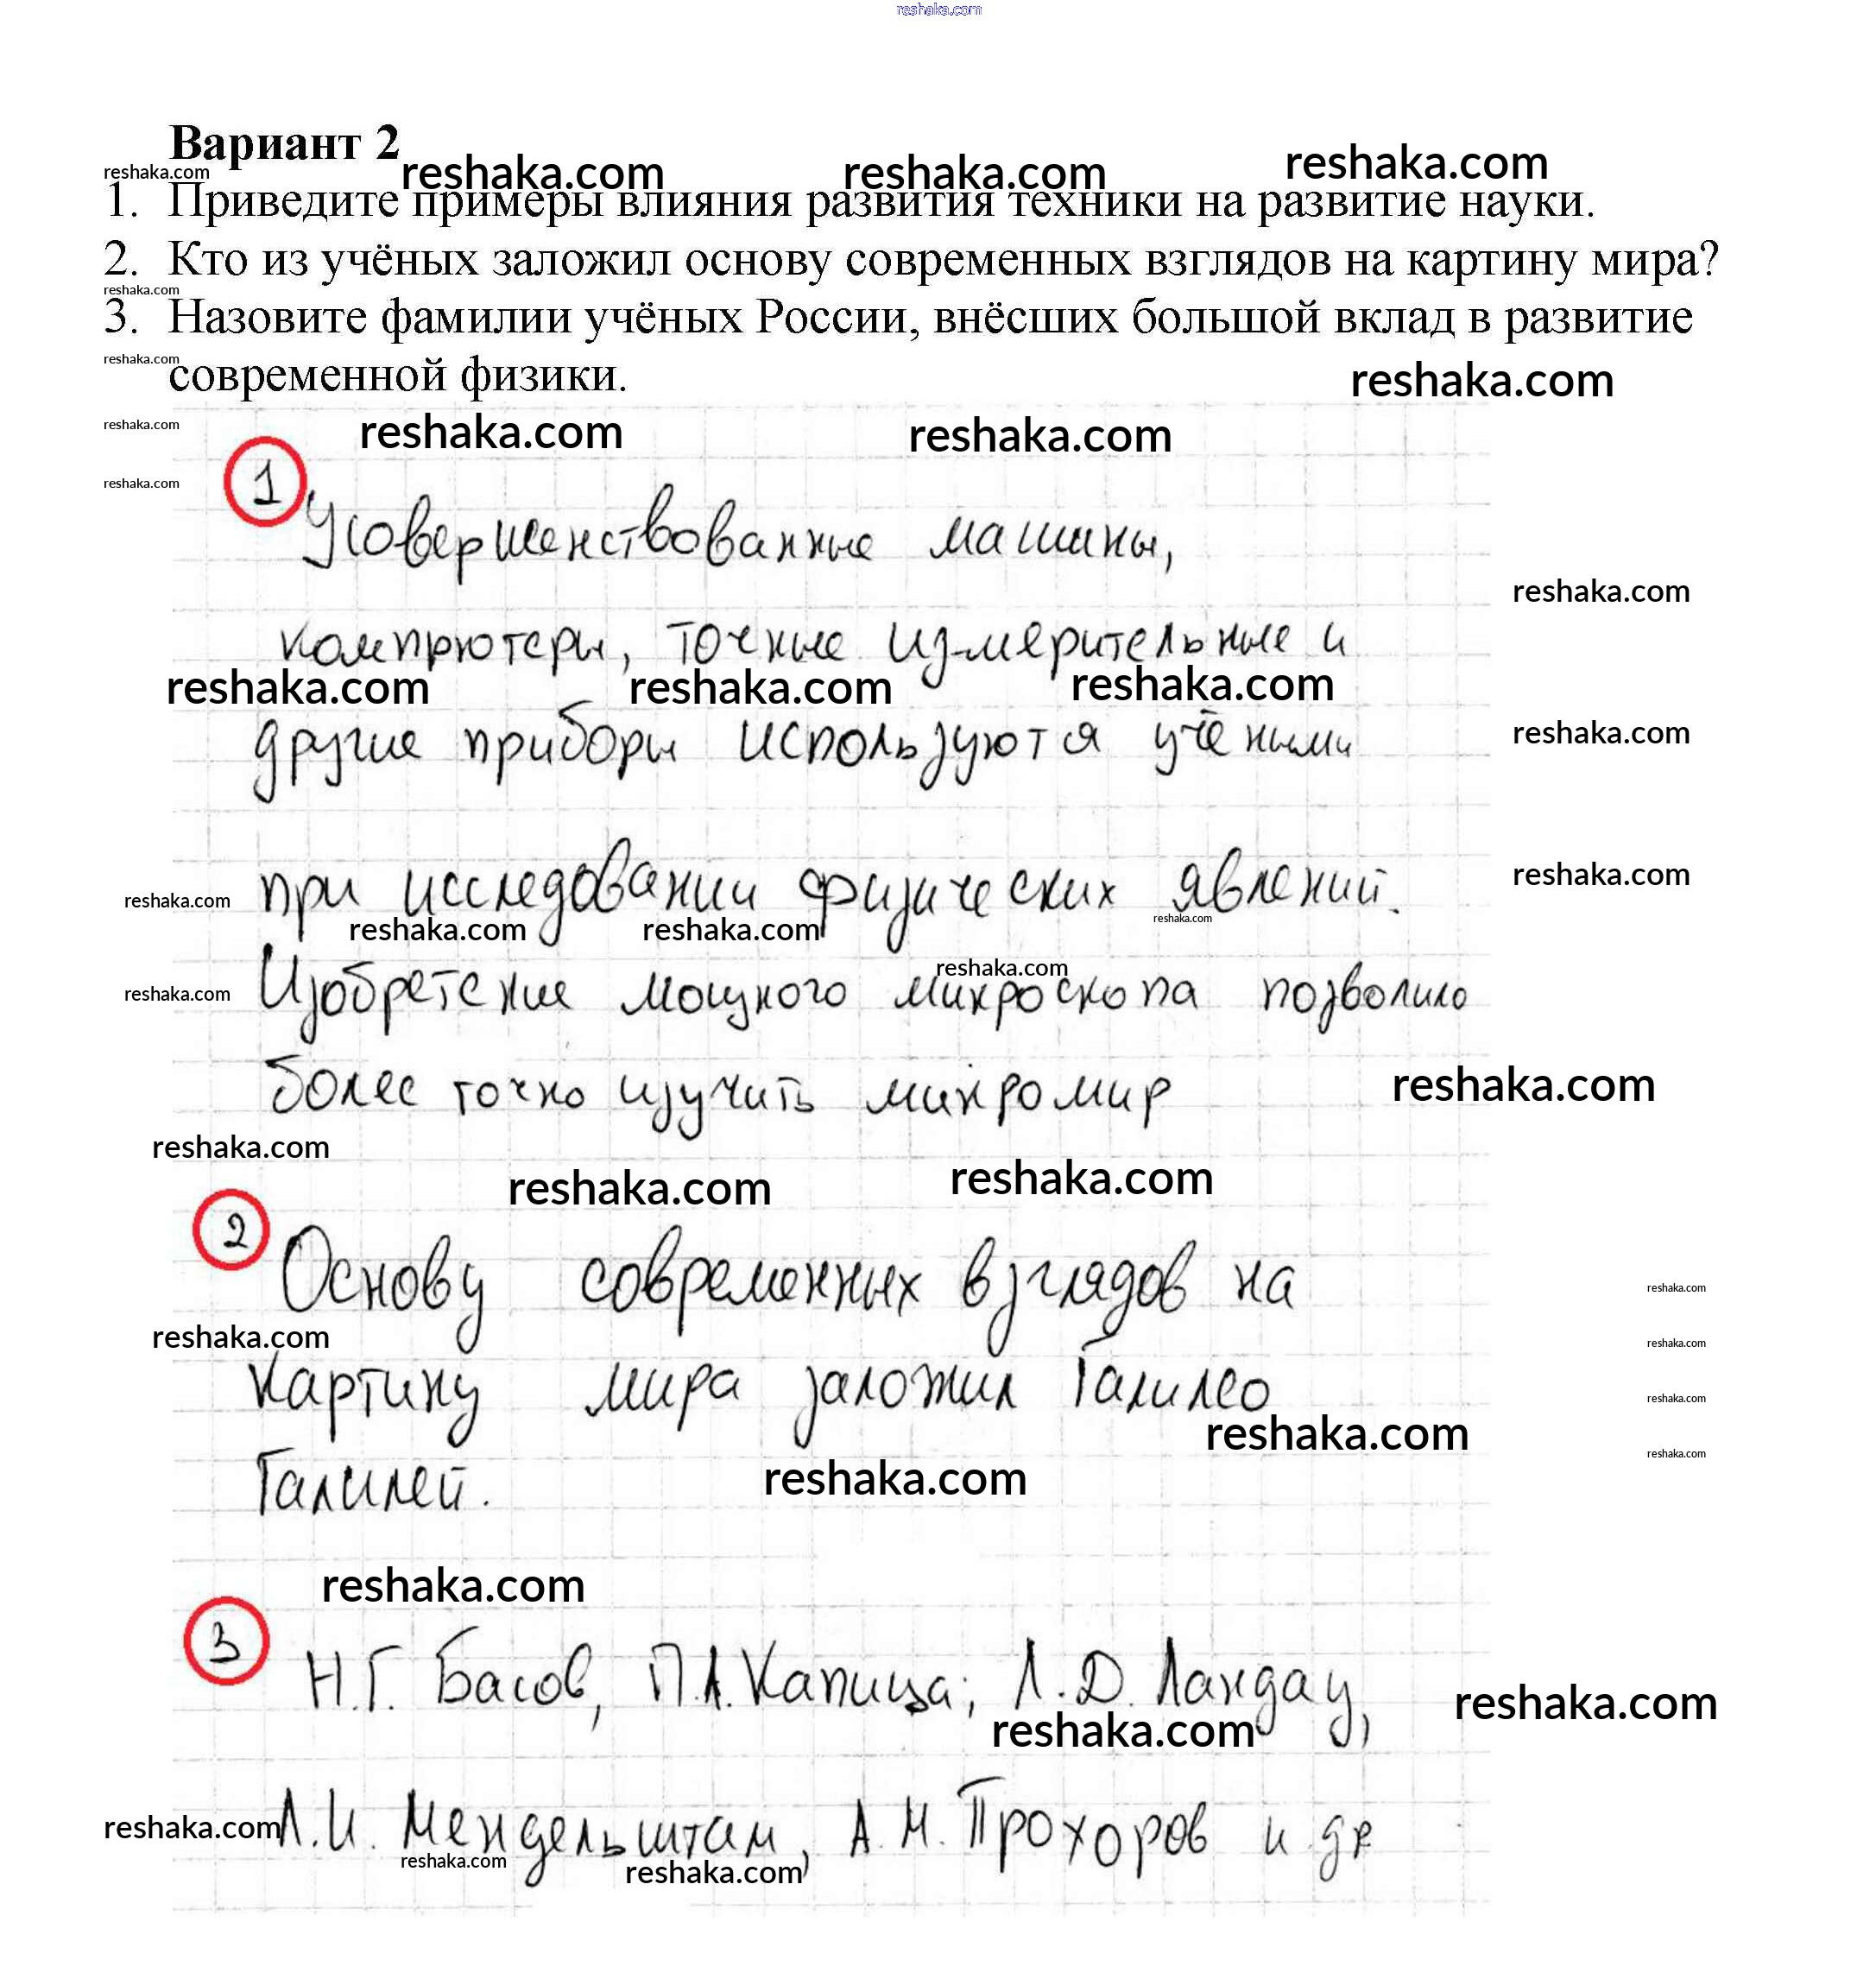 reshaka.com
Вариант 2
reshaka.com reshaka.com reshaka.com reshaka.com
1. Приведите примеры влияния развития техники на развитие науки.
2. Кто из учёных заложил основу современных взглядов на картину мира?
reshaka.com
3. Назовите фамилии учёных России, внёсших большой вклад в развитие
reshaka.com
современной физики.
reshaka.com
reshaka.com reshaka.com reshaka.com
reshaka.com
1 Усовершенствованные машины,
reshaka.com
компрютеры, точные измерительные и
reshaka.com reshaka.com reshaka.com
другие приборы используются учёными
reshaka.com
при исследовании физических явлений.
reshaka.com reshaka.com
reshaka.com reshaka.com reshaka.com
reshaka.com
Изобретение мощного микроскопа позволило
reshaka.com
более точно изучить микромир
reshaka.com
reshaka.com
reshaka.com reshaka.com
2 Основу современных взглядов на
reshaka.com
reshaka.com reshaka.com
картину мира заложил Галилео
reshaka.com
reshaka.com
reshaka.com
Галилей.
reshaka.com
reshaka.com
3 Н.Г. Басов, П.А. Капица; Л.Д. Ландау,
reshaka.com
reshaka.com
reshaka.com
Л.И. Мендельштам, А.М. Прохоров и др
reshaka.com reshaka.com